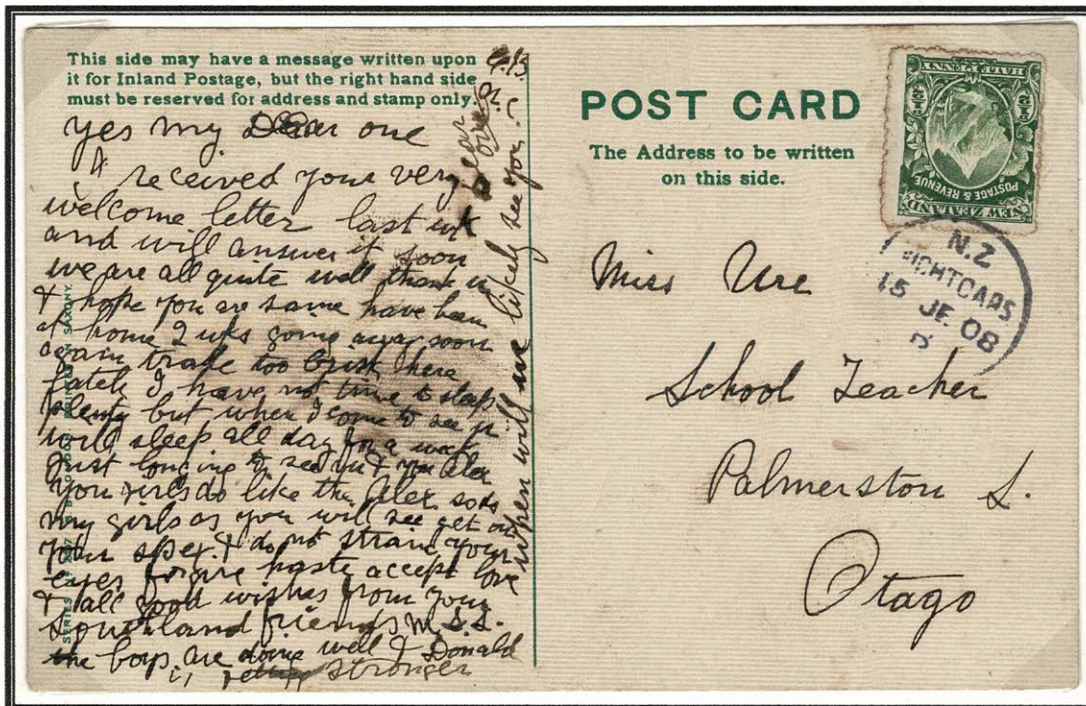 This side may have a message written upon
it for Inland Postage, but the right hand side
must be reserved for address and stamp only.
yes my Dear one
I received your very
welcome letter last wk
and will answer it soon
we are all quite well thank u
& hope you are same have been
at home 2 wks going away soon
again trade too brisk there
lately I have not time to sleep
plenty but when I come to see u
will sleep all day for a week
Just longing to see you & you Alex
you girls do like the Alex so do
my girls as you will see get out
your spex & do not strain your
eyes forgive haste accept love
& all good wishes from your
Southland friends M.S.S.
the boys are doing well & Donald
is getting stronger
when will we likely see you
POST CARD
The Address to be written
on this side.
NEW ZEALAND
POSTAGE & REVENUE
HALF PENNY
1/2
1/2
N.Z
15 JE 08
Miss Ure
School Teacher
Palmerston S.
Otago
SAXONY.
SERIES